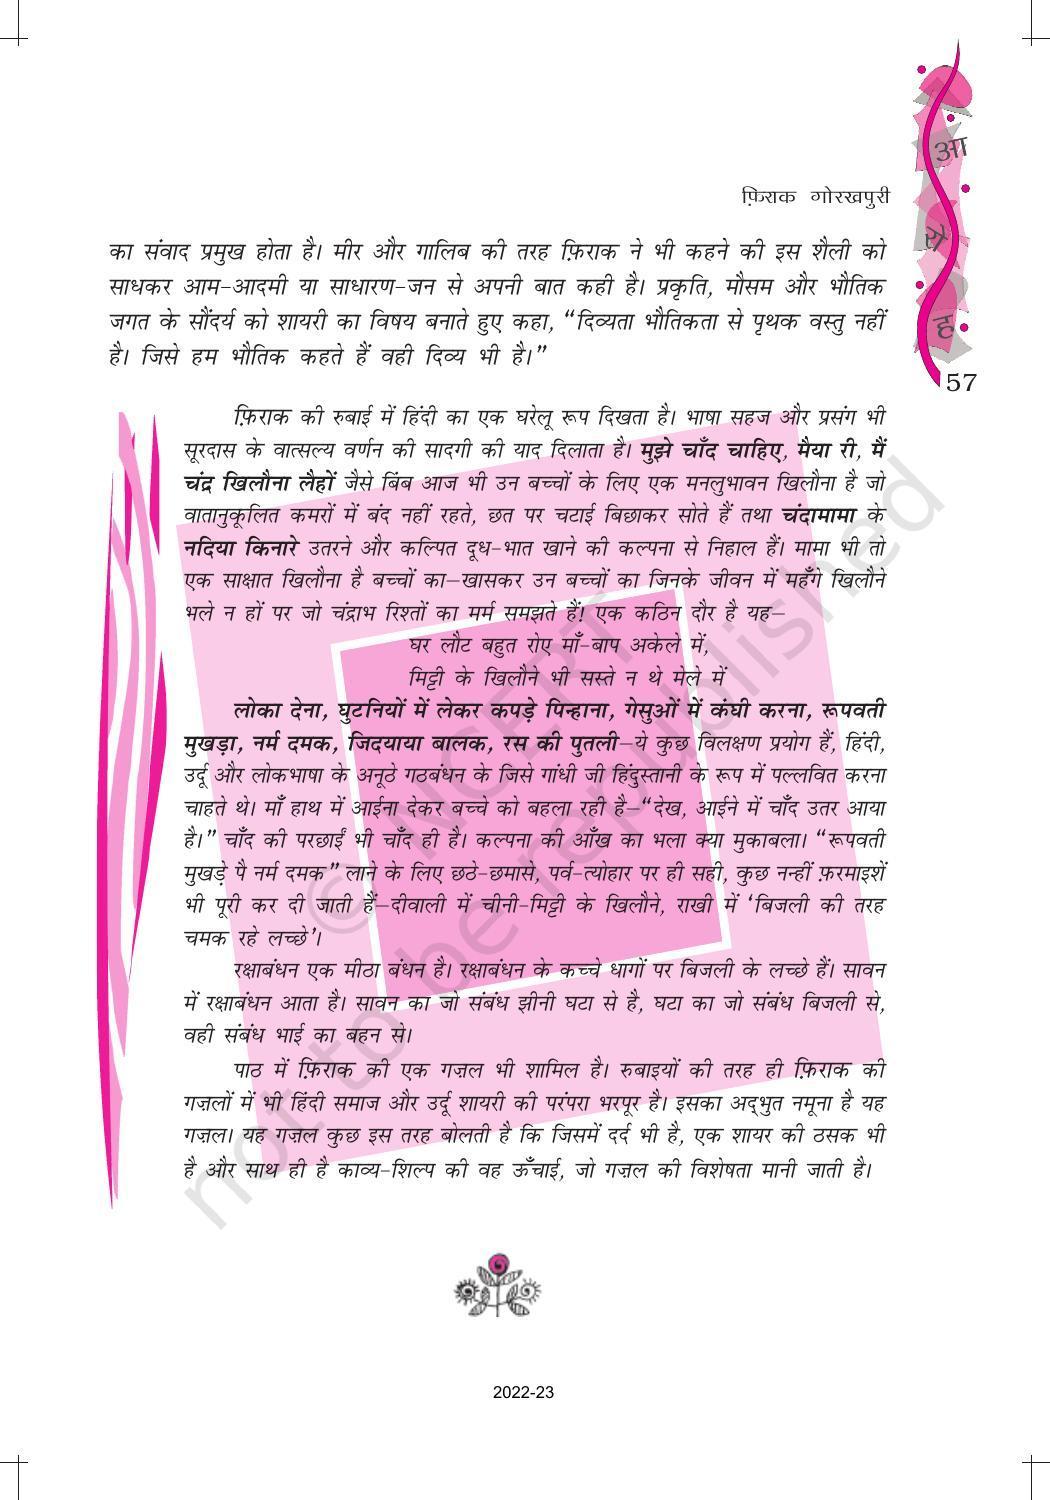 फ़िराक गोरखपुरी
का संवाद प्रमुख होता है। मीर और गालिब की तरह फ़िराक ने भी कहने की इस शैली को
साधकर आम-आदमी या साधारण-जन से अपनी बात कही है। प्रकृति, मौसम और भौतिक
जगत के सौंदर्य को शायरी का विषय बनाते हुए कहा, “दिव्यता भौतिकता से पृथक वस्तु नहीं
है। जिसे हम भौतिक कहते हैं वही दिव्य भी है।”
आ
रो
ह
57
फ़िराक की रुबाई में हिंदी का एक घरेलू रूप दिखता है। भाषा सहज और प्रसंग भी
सूरदास के वात्सल्य वर्णन की सादगी की याद दिलाता है। मुझे चाँद चाहिए, मैया री, मैं
चंद्र खिलौना लैहों जैसे बिंब आज भी उन बच्चों के लिए एक मनलुभावन खिलौना है जो
वातानुकूलित कमरों में बंद नहीं रहते, छत पर चटाई बिछाकर सोते हैं तथा चंदामामा के
नदिया किनारे उतरने और कल्पित दूध-भात खाने की कल्पना से निहाल हैं। मामा भी तो
एक साक्षात खिलौना है बच्चों का–खासकर उन बच्चों का जिनके जीवन में महँगे खिलौने
भले न हों पर जो चंद्राभ रिश्तों का मर्म समझते हैं! एक कठिन दौर है यह–
घर लौट बहुत रोए माँ-बाप अकेले में,
मिट्टी के खिलौने भी सस्ते न थे मेले में
लोका देना, घुटनियों में लेकर कपड़े पिन्हाना, गेसुओं में कंघी करना, रूपवती
मुखड़ा, नर्म दमक, जिदयाया बालक, रस की पुतली–ये कुछ विलक्षण प्रयोग हैं, हिंदी,
उर्दू और लोकभाषा के अनूठे गठबंधन के जिसे गांधी जी हिंदुस्तानी के रूप में पल्लवित करना
चाहते थे। माँ हाथ में आईना देकर बच्चे को बहला रही है–“देख, आईने में चाँद उतर आया
है।” चाँद की परछाईं भी चाँद ही है। कल्पना की आँख का भला क्या मुकाबला। “रूपवती
मुखड़े पै नर्म दमक” लाने के लिए छठे-छमासे, पर्व-त्योहार पर ही सही, कुछ नन्हीं फ़रमाइशें
भी पूरी कर दी जाती हैं–दीवाली में चीनी-मिट्टी के खिलौने, राखी में ‘बिजली की तरह
चमक रहे लच्छे’।
रक्षाबंधन एक मीठा बंधन है। रक्षाबंधन के कच्चे धागों पर बिजली के लच्छे हैं। सावन
में रक्षाबंधन आता है। सावन का जो संबंध झीनी घटा से है, घटा का जो संबंध बिजली से,
वही संबंध भाई का बहन से।
पाठ में फ़िराक की एक गज़ल भी शामिल है। रुबाइयों की तरह ही फ़िराक की
गज़लों में भी हिंदी समाज और उर्दू शायरी की परंपरा भरपूर है। इसका अद्भुत नमूना है यह
गज़ल। यह गज़ल कुछ इस तरह बोलती है कि जिसमें दर्द भी है, एक शायर की ठसक भी
है और साथ ही है काव्य-शिल्प की वह ऊँचाई, जो गज़ल की विशेषता मानी जाती है।
© NCERT
not to be republished
2022-23